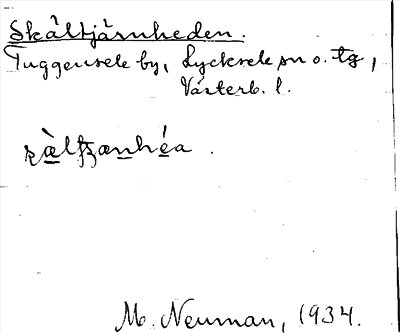 Skältjärnheden.
Tuggensele by, Lycksele sn o. tg,
Västerb. l.
M. Neuman, 1934.